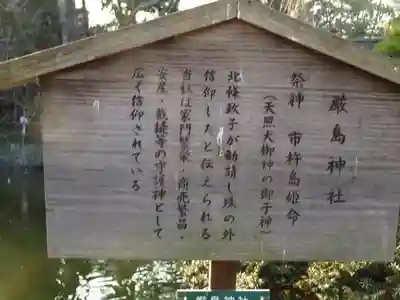 厳島神社
祭神 市杵島姫命
(天照大御神の御子神)
北條政子が勧請し殊の外
信仰したと伝えられる
当社は家門繁栄・商売繁昌・
安産・裁縫等の守護神として
広く信仰されている
厳島神社